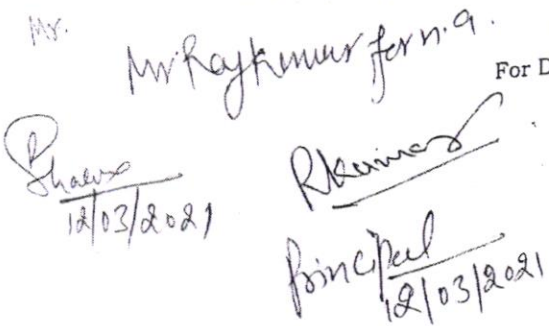 Mr.
Mr Rajkumar for n.a.
For D
Rkumar
12/03/2021
Principal
12/03/2021